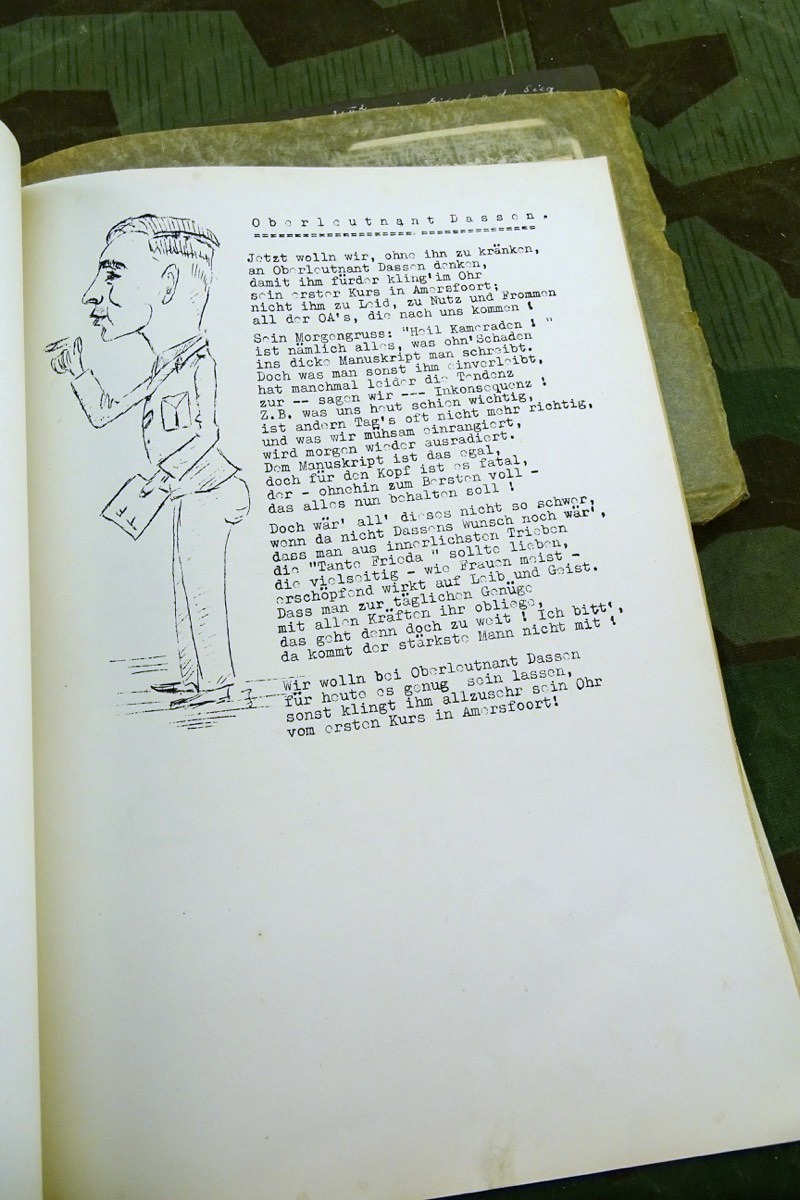 Oberleutnant Dassen.
Jetzt wolln wir, ohne ihn zu kränken,
an Oberleutnant Dassen denken,
damit ihm fürder kling'im Ohr
sein erster Kurs in Amersfoort;
nicht ihm zu Leid, zu Nutz und Frommen
all der OA's, die nach uns kommen !
Sein Morgengruss: "Heil Kameraden ! "
ist nämlich alles, was ohn'Schaden
ins dicke Manuskript man schreibt.
Doch was man sonst ihm einverleibt,
hat manchmal leider die Tendenz
zur -- sagen wir --- Inkonsequenz !
Z.B. was uns heut schien wichtig,
ist andern Tag's oft nicht mehr richtig,
und was wir mühsam einrangiert,
wird morgen wieder ausradiert.
Dem Manuskript ist das egal,
doch für den Kopf ist es fatal,
der - ohnehin zum Bersten voll -
das alles nun behalten soll !
Doch wär' all' dieses nicht so schwer,
wenn da nicht Dassens Wunsch noch wär',
dass man aus innerlichsten Trieben
die "Tante Frieda " sollte lieben,
die vielseitig - wie Frauen meist -
erschöpfend wirkt auf Leib und Geist.
Dass man zur täglichen Genüge
mit allen Kräften ihr obliege,
das geht denn doch zu weit ! Ich bitt',
da kommt der stärkste Mann nicht mit !
Wir wolln bei Oberleutnant Dassen
für heute es genug sein lassen,
sonst klingt ihm allzusehr sein Ohr
vom ersten Kurs in Amersfoort!